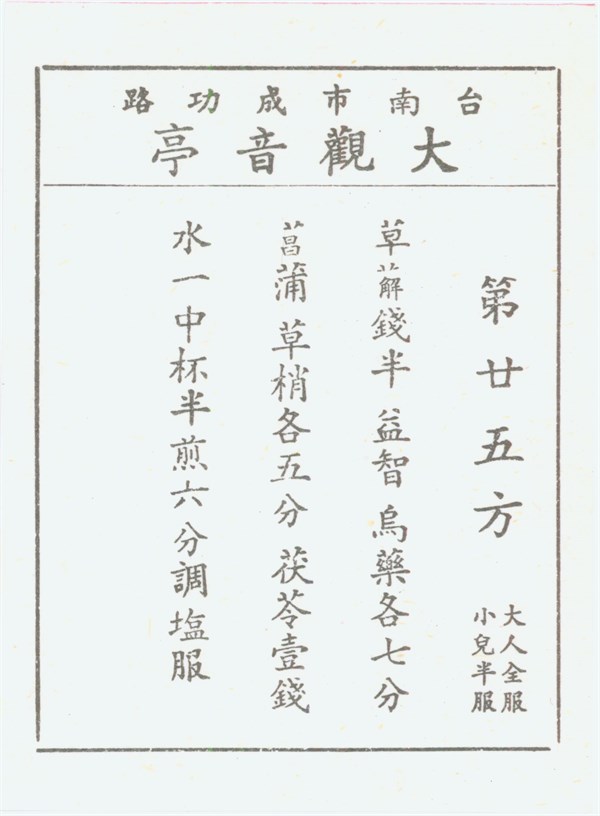 台南市成功路
大觀音亭
第廿五方
大人全服
小兒半服
草薢錢半 益智 烏藥各七分
菖蒲 草梢各五分 茯苓壹錢
水一中杯半煎六分調塩服